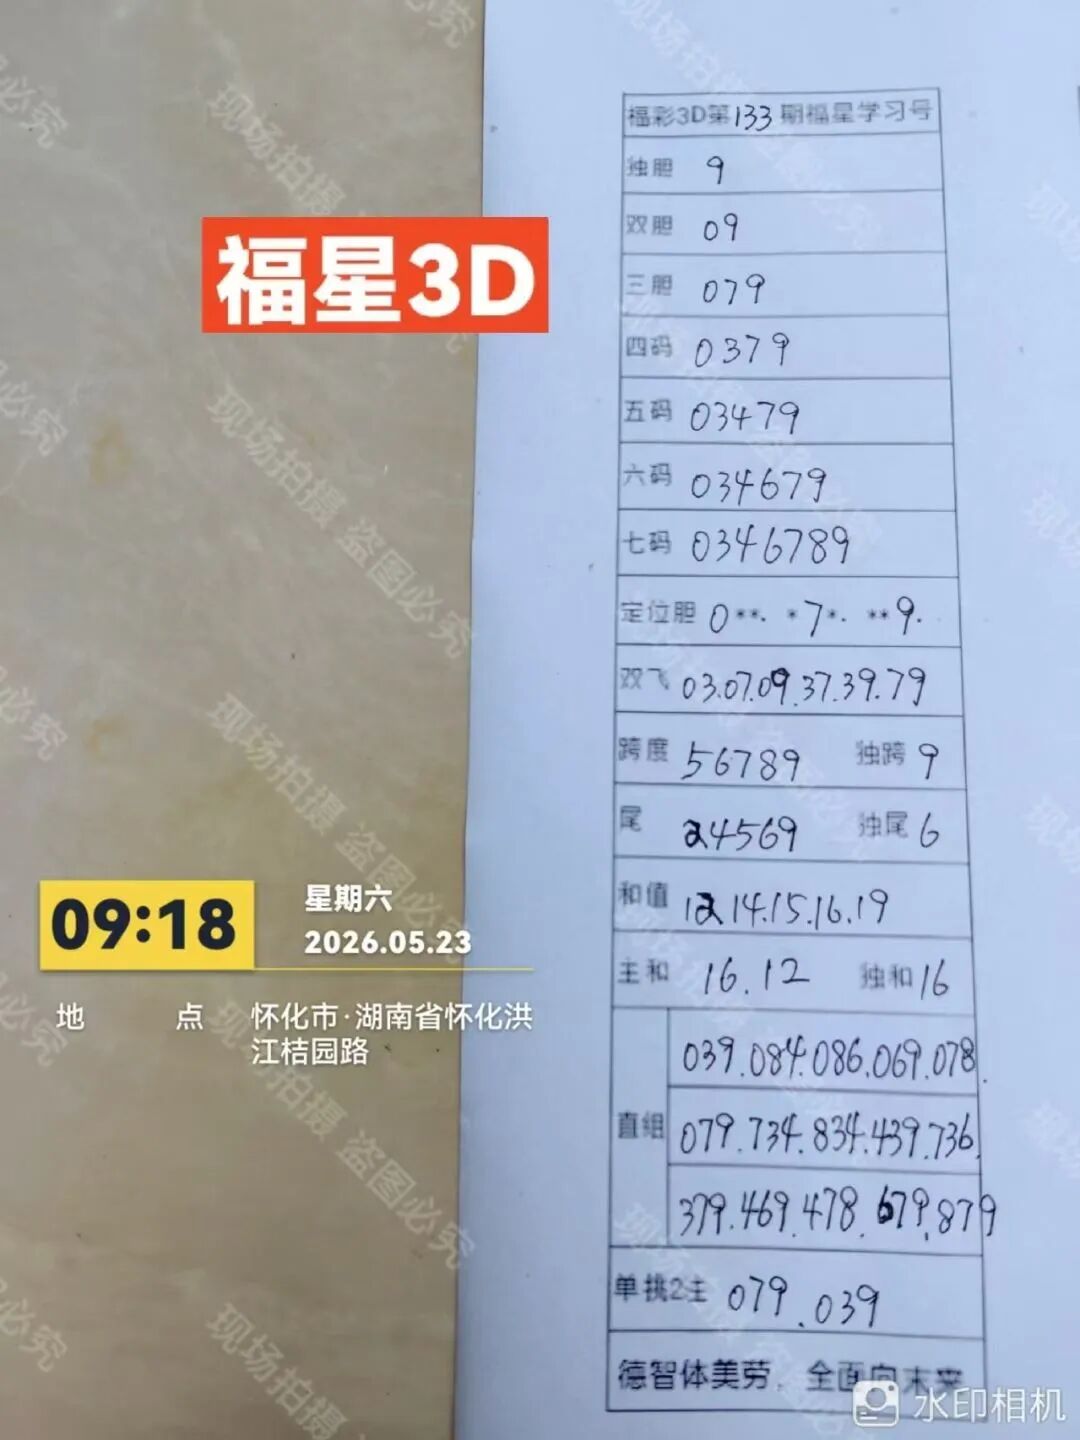 福彩3D第133期福星学习号
独胆 9
双胆 09
三胆 079
四码 0379
五码 03479
六码 034679
七码 0346789
定位胆 0**. *7*. **9.
双飞 03.07.09.37.39.79
跨度 56789 独跨 9
尾 24569 独尾 6
和值 12 14.15.16.19
主和 16.12 独和 16
直组
039.084.086.069.078.
079.734.834.439.736.
379.469.478.679.879
单挑2主 079.039
德智体美劳，全面向未来
福星3D
09:18
星期六
2026.05.23
地 点 怀化市·湖南省怀化洪
江桔园路
水印相机
现场拍摄 盗图必究